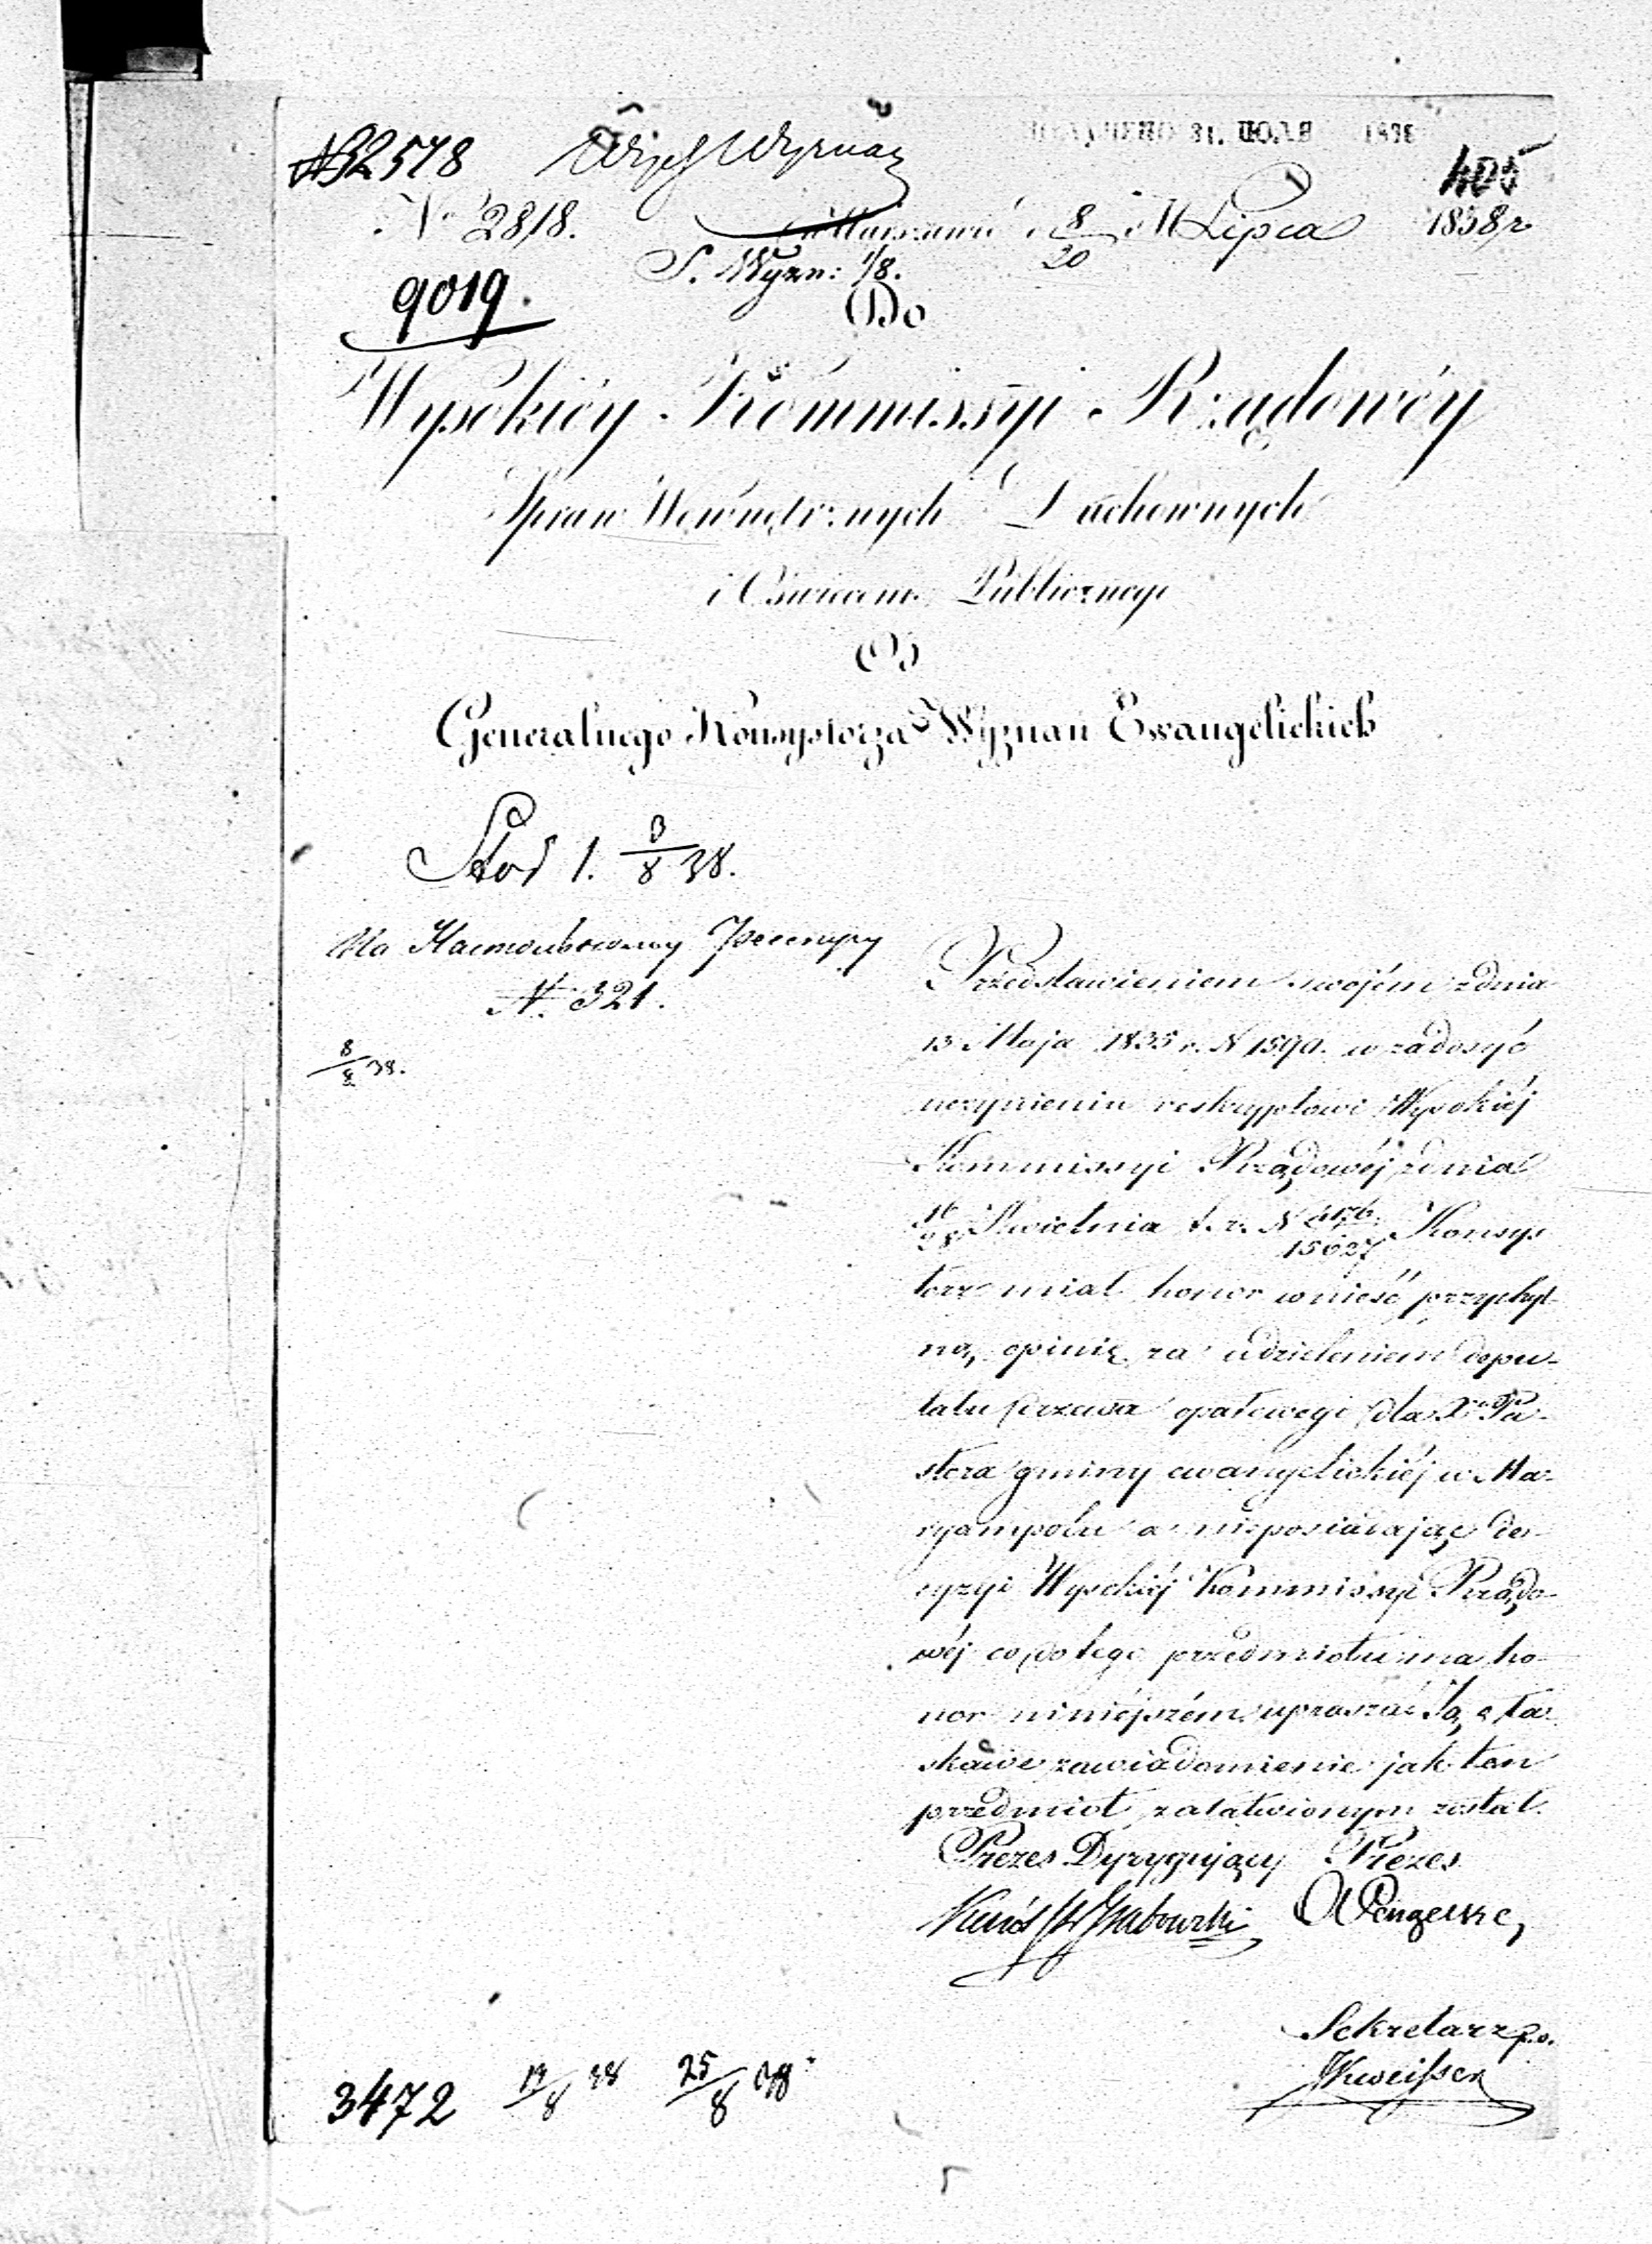 № 32578 Wizyt Wyznań 31. ІЮЛЯ 1838
405
№ 2818. w Warszawie d. 8/20 M Lipca 1838 r.
S. Wyzn: 1/8.
9019.
Do
Wysokiéy Kommissyi Rządowéy
Spraw Wewnętrznych Duchownych
i Oświecenia Publicznego
Od
Generalnego Konsystorza Wyznań Ewangelickich
1. 3/8 38.
На Настольному Реестру
№ 321.
8/8 38.
Przedstawieniem swojém z dnia
13 Maja 1835 r. N 1590. w zadosyć
uczynieniu reskryptowi Wysokiéj
Kommissyi Rządowéj z dnia
16/28 Kwietnia t. r. N 4176/15627 Konsys
torz miał honor wnieść przychyl-
ną opinię za udzieleniem depu-
tatu drzewa opałowego dla Xdza Pa-
stora gminy ewangelickiéj w Ma-
ryampolu a nieposiadając de-
cyzyi Wysokiéj Kommissyi Rządo-
wéj co do tego przedmiotu ma ho-
nor niniéjszém upraszać Ją o ła-
skawe zawiadomienie jak ten
przedmiot załatwionym został.
Prezes Dyrygujący Prezes
Grabowski
Sekretarz p.o.
3472 13/8 38 25/8 38